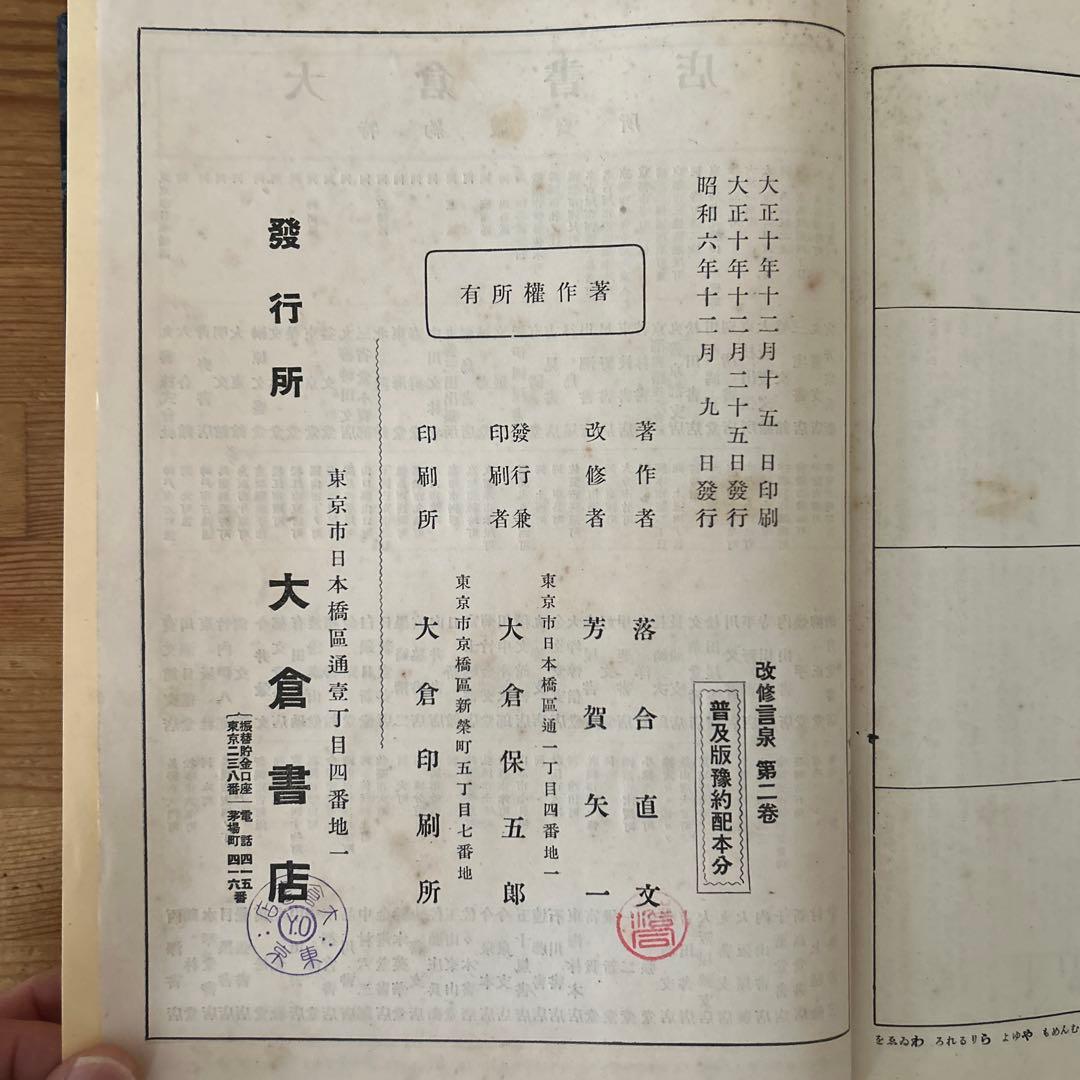 大正十年十二月十五日印刷
大正十年十二月二十五日發行
昭和六年十二月九日發行
改修言泉 第二卷
普及版豫約配本分
著作權所有
著作者 落合直文
改修者 芳賀矢一
東京市日本橋區通一丁目四番地一
發行兼印刷者 大倉保五郎
東京市京橋區新榮町五丁目七番地
印刷所 大倉印刷所
東京市日本橋區通壹丁目四番地一
發行所 大倉書店
振替貯金口座東京二三八番
電話茅場町四一五四一六番
大倉書店 東京 Y.O
むんめも やゆよ らりるれろ わゐゑを